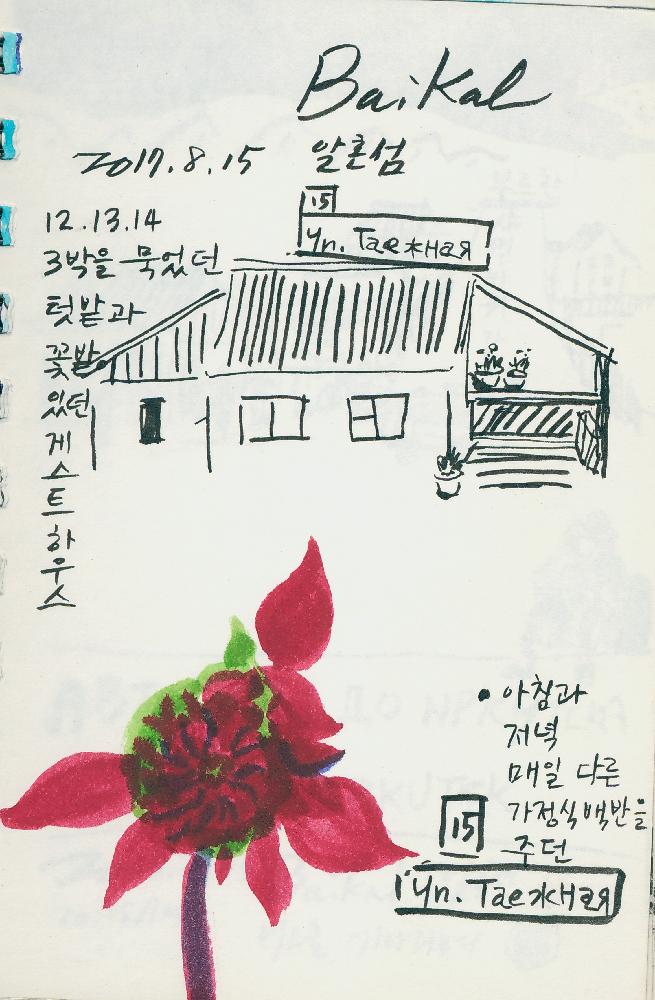 Baikal
2017.8.15 알혼섬
12.13.14
3박을 묵었던
텃밭과
꽃밭
있던
게
스
트
하
우
스
15
Ул. Таежная
• 아침과
저녁
매일 다른
가정식백반을
주던
15
Ул. Таежная